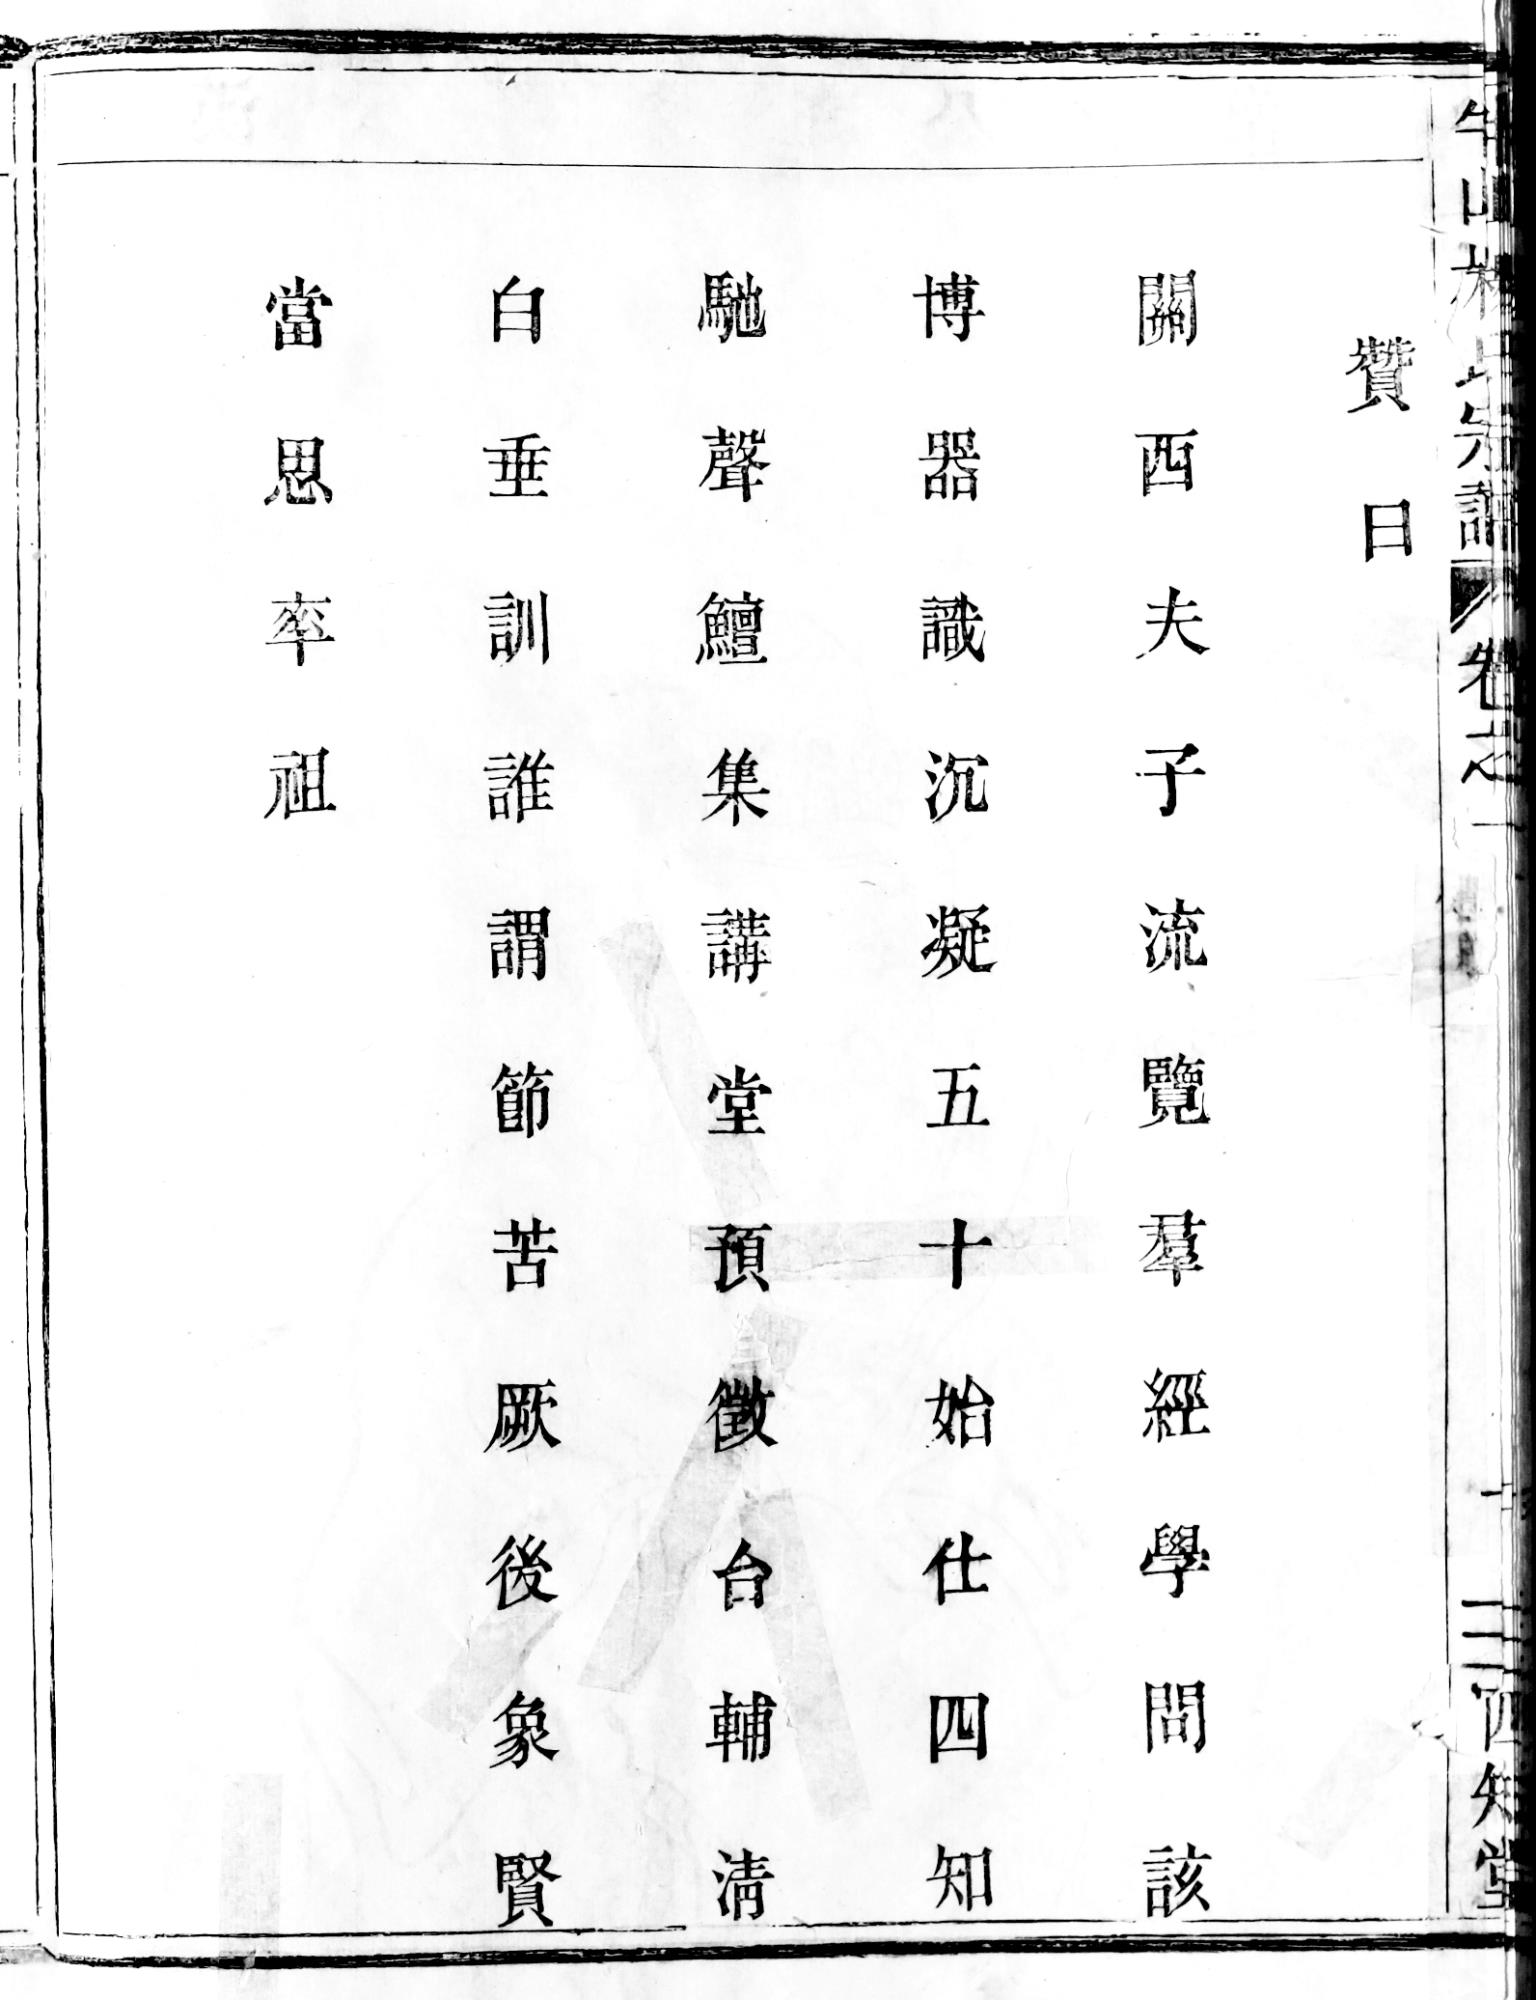 贊曰
關西夫子流覽羣經學問該
博器識沉凝五十始仕四知
馳聲鱣集講堂預徵台輔清
白垂訓誰謂節苦厥後象賢
當思率祖
氏宗譜 卷之一
四知堂